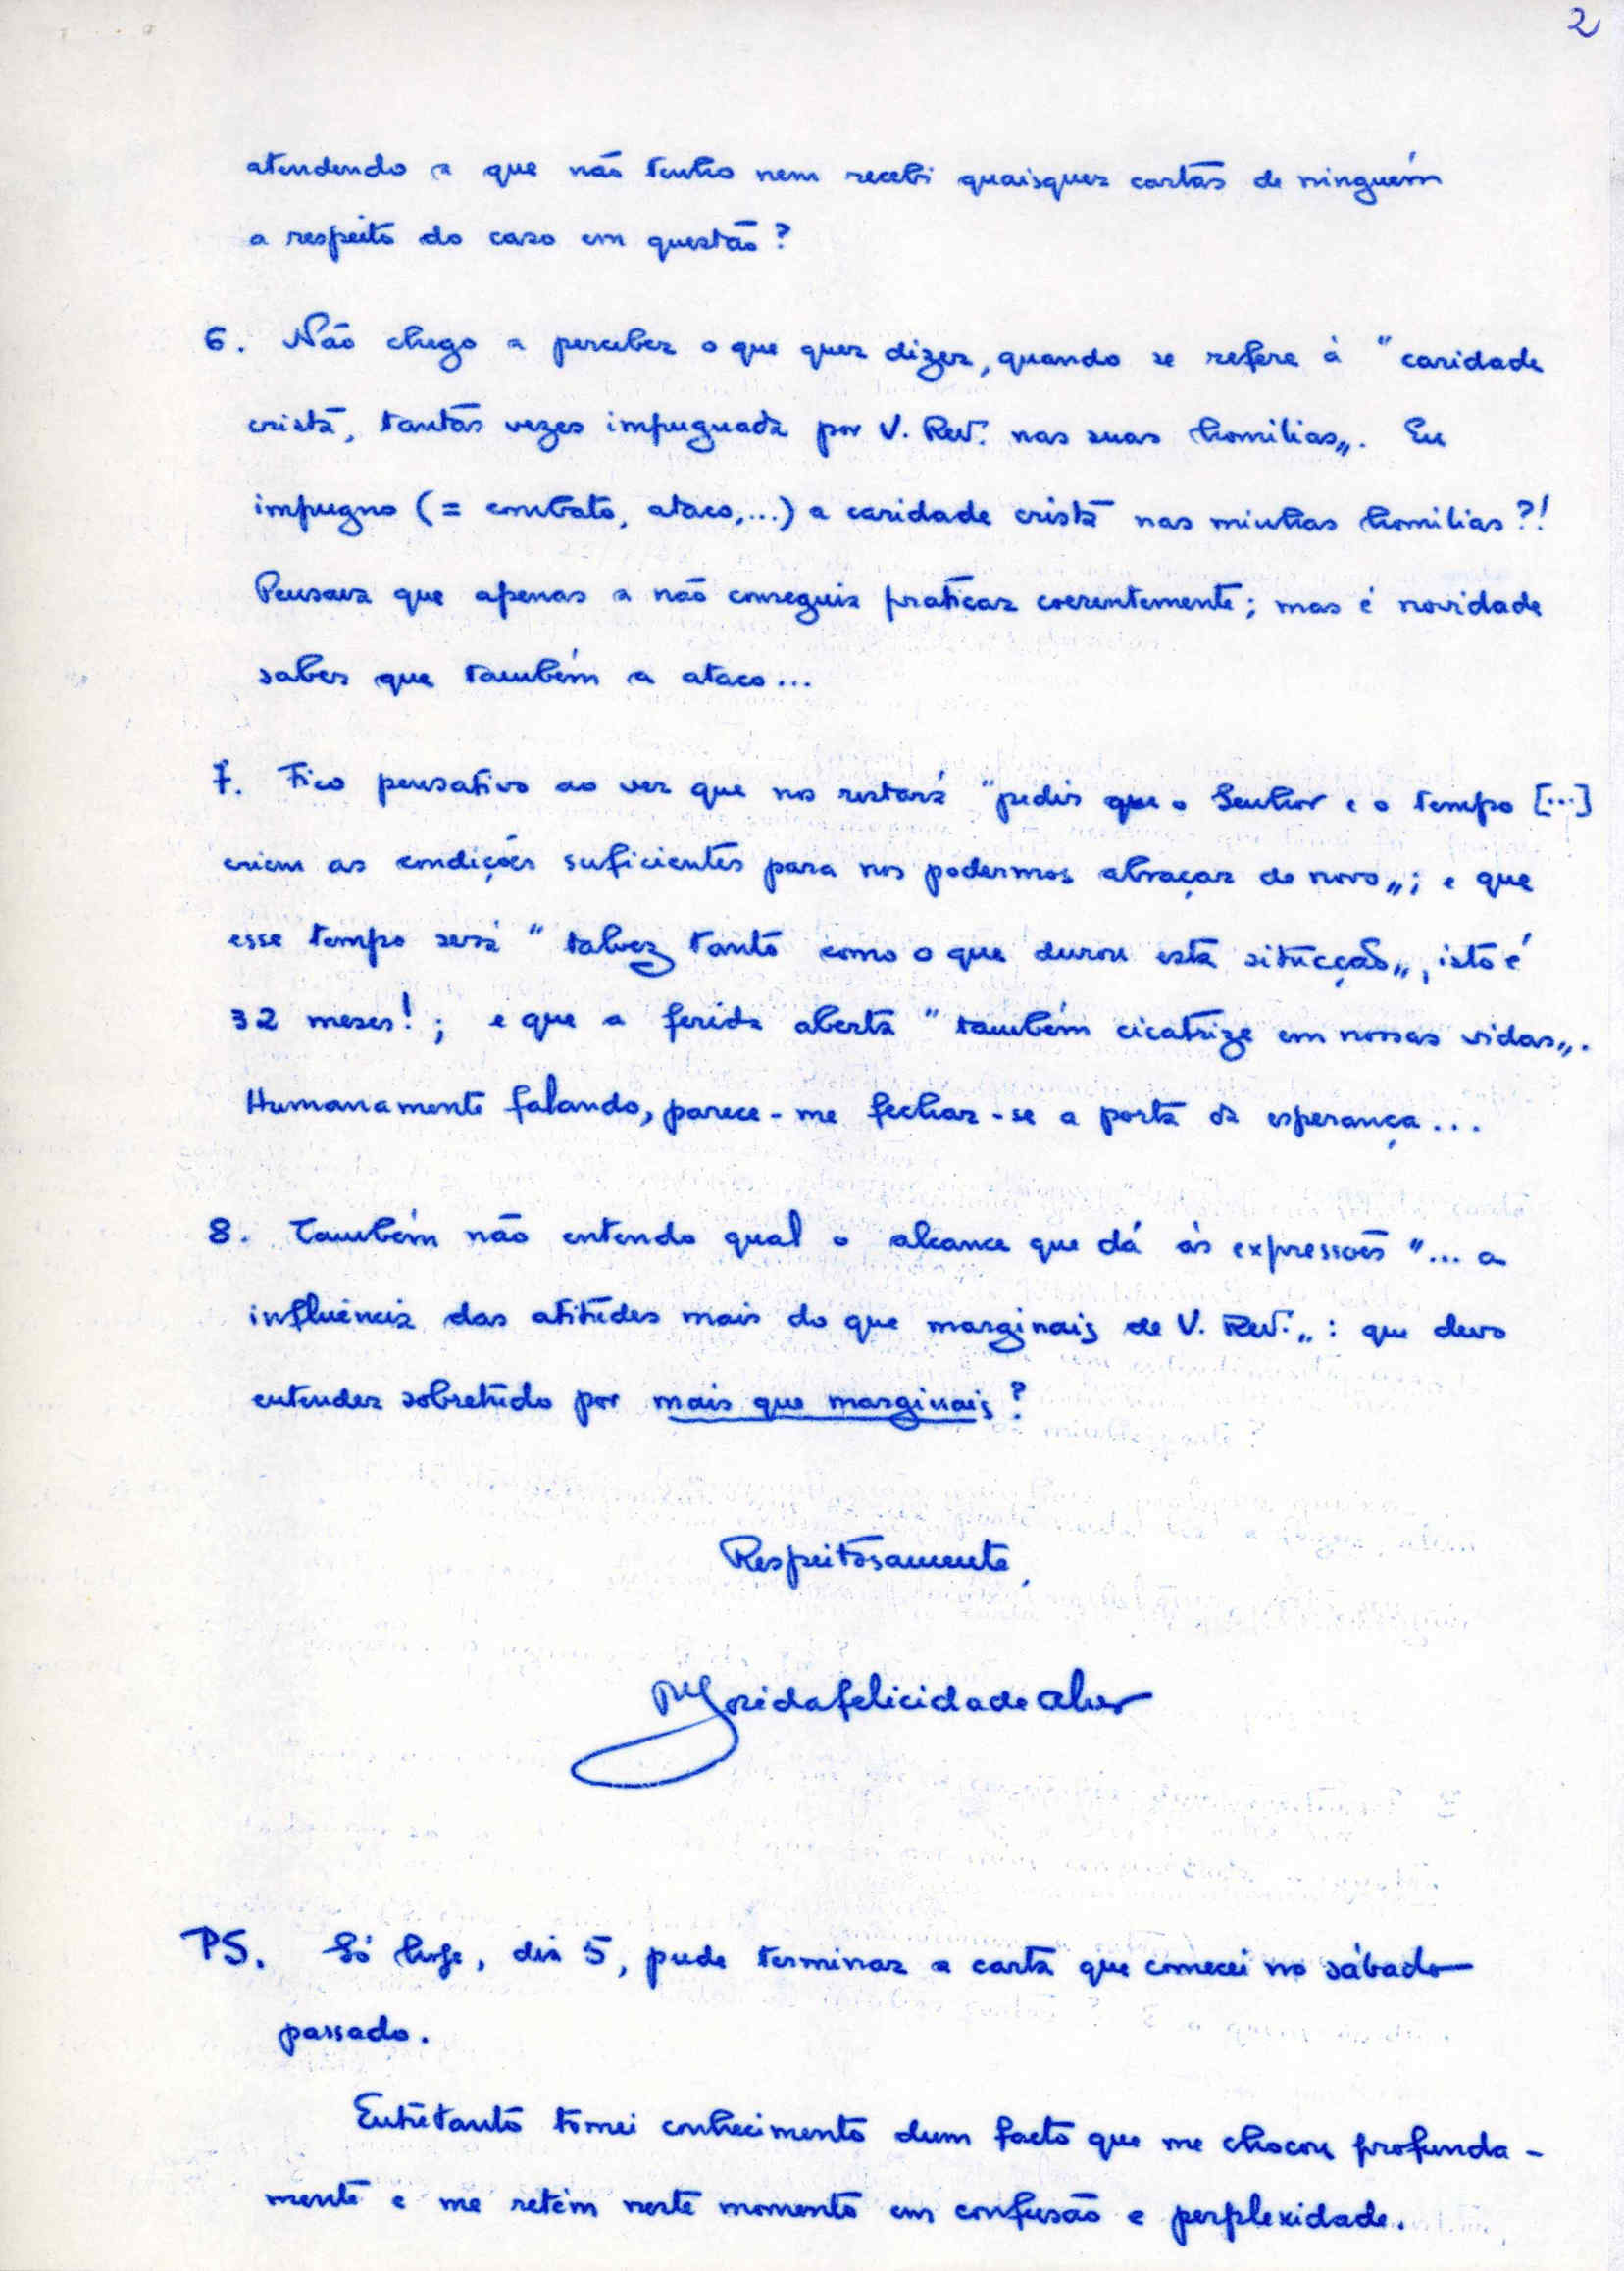 2
atendendo a que não tenho nem recebi quaisquer cartas de ninguém
a respeito do caso em questão?
6. Não chego a perceber o que quer dizer, quando se refere à "caridade
cristã, tantas vezes impugnada por V. Rev. nas suas homilias„. Eu
impugno (= combato, ataco,...) a caridade cristã nas minhas homilias?!
Pensava que apenas a não conseguia praticar coerentemente; mas é novidade
saber que também a ataco...
7. Fico pensativo ao ver que nos restará "pedir que o Senhor e o tempo [...]
criem as condições suficientes para nos podermos abraçar de novo„; e que
esse tempo será "talvez tanto como o que durou esta situação„, isto é
32 meses!; e que a ferida aberta "também cicatrize em nossas vidas„.
Humanamente falando, parece-me fechar-se a porta da esperança...
8. Também não entendo qual o alcance que dá às expressões "... a
influência das atitudes mais do que marginais de V. Rev.„: que devo
entender sobretudo por mais que marginais?
Respeitosamente,
José da Felicidade Alves
PS. Só hoje, dia 5, pude terminar a carta que comecei no sábado
passado.
Entretanto tomei conhecimento dum facto que me chocou profunda-
mente e me retém neste momento em confusão e perplexidade.